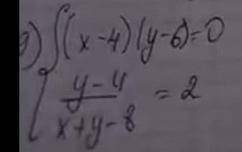 9) { (x-4)(y-6)=0
(y-4)/(x+y-8) = 2